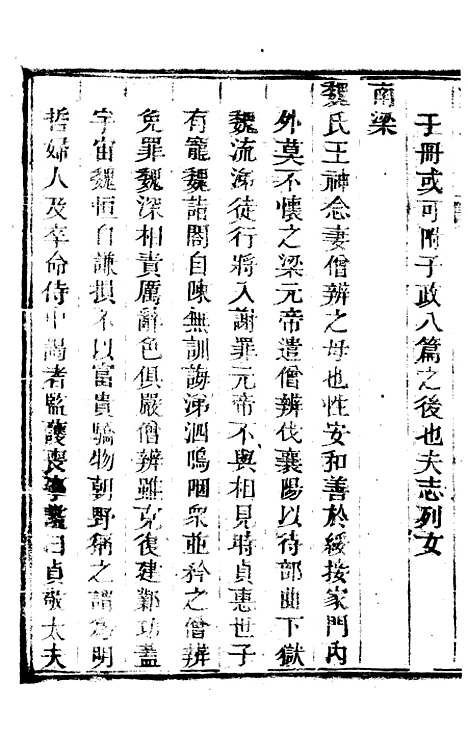 于冊或可附子政八篇之後也夫志列女
南梁
魏氏王神念妻僧辨之母也性安和善於綏接家門內
外莫不懷之梁元帝遣僧辨伐襄陽以待部曲下獄
魏流涕徒行將入謝罪元帝不與相見時貞惠世子
有寵魏詣閤自陳無訓誨涕泗嗚咽衆並矜之僧辨
免罪魏深相責厲辭色俱嚴僧辨雖克復建鄴功蓋
宇宙魏恒自謙損不以富貴驕物朝野稱之謂爲明
哲婦人及卒命侍中謁者監護喪事諡曰貞敬太夫